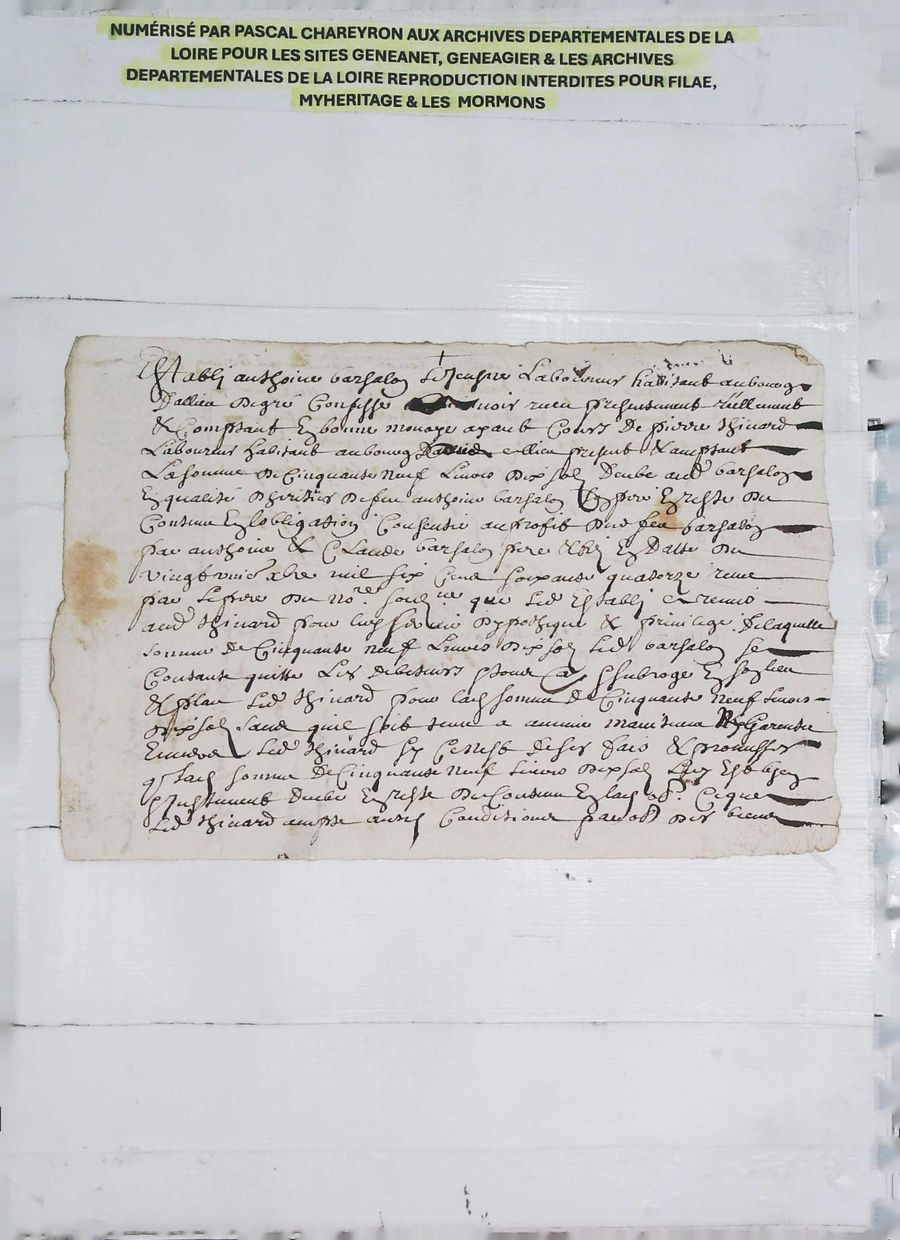 NUMÉRISÉ PAR PASCAL CHAREYRON AUX ARCHIVES DEPARTEMENTALES DE LA
LOIRE POUR LES SITES GENEANET, GENEAGIER & LES ARCHIVES
DEPARTEMENTALES DE LA LOIRE REPRODUCTION INTERDITES POUR FILAE,
MYHERITAGE & LES MORMONS
Establi anthoine barsalon Laboureur habitant au bourg
Dallieu de gré Confesse avoir receu presentement réellement
& Comptant En bonne monoye ayant Cours De pierre thinard
Laboureur habitant au bourg present & acceptant
La somme De Cinquante neuf Livres dix sols Deube aud barsalon
En qualité Dheritier De feu anthoine barsalon père En reste Du
Contenu En lobligation Consentie au profit Dud feu barsalon
par anthoine & Claude barsalon pere & En Datte Du
vingt mil six Cens soixante quatorze receue
par Du no.re soub.né que Led Establi a remis
aud thinard pour Dypothique & privilege. De laquelle
somme de Cinquante neuf Livres dix sols Led barsalon se
Contante quitte Les debiteurs & Subroge En son lieu
& place Led thinard pour lad somme De Cinquante neuf Livres
dix sols sans quil soit tenu a aucune maintenue Ny Garentie
Envers Led thinard Sy Ce nest de ses faits & promesses
lad somme De Cinquante neuf Livres dix sols Luy Est bien
& Justement deube En reste Du Contenu En lad ob.on Ce que
Led thinard accepte Conditions par ob.on Des biens